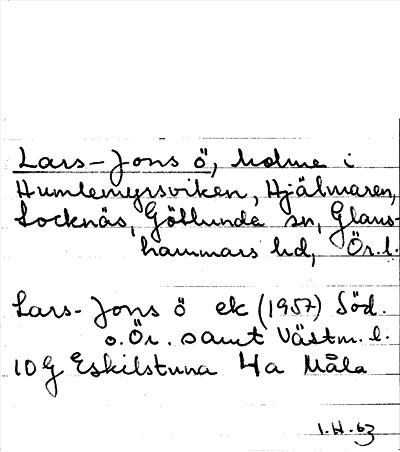 Lars-Jons ö, holme i
Humlemyrsviken, Hjälmaren,
Socknäs, Götlunda sn, Glans-
hammars hd, Ör.l.
Lars-Jons ö ek (1957) Söd.
o. Ör. samt Västm. l.
10 G Eskilstuna 4a Måla
1.H.63